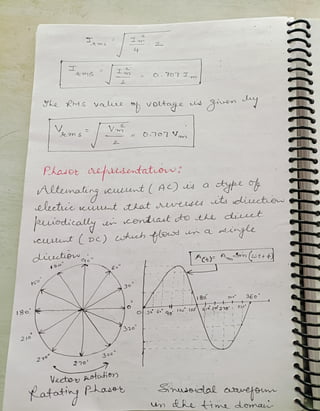 I_rms = √(I_m²/4 · 2)
I_rms = √(I_m²/2) = 0.707 I_m
The RMS value of voltage is given by
V_rms = √(V_m²/2) = 0.707 V_m
Phasor representation:
Alternating current (AC) is a type of
electric current that reverses its direction
periodically in contrast to the direct
current (DC) which flows in a single
direction.
90°
60°
30°
0°
180°
210°
270°
Vector Rotation
Rotating Phasor
180°
360°
Sinusoidal waveform
in the time domain